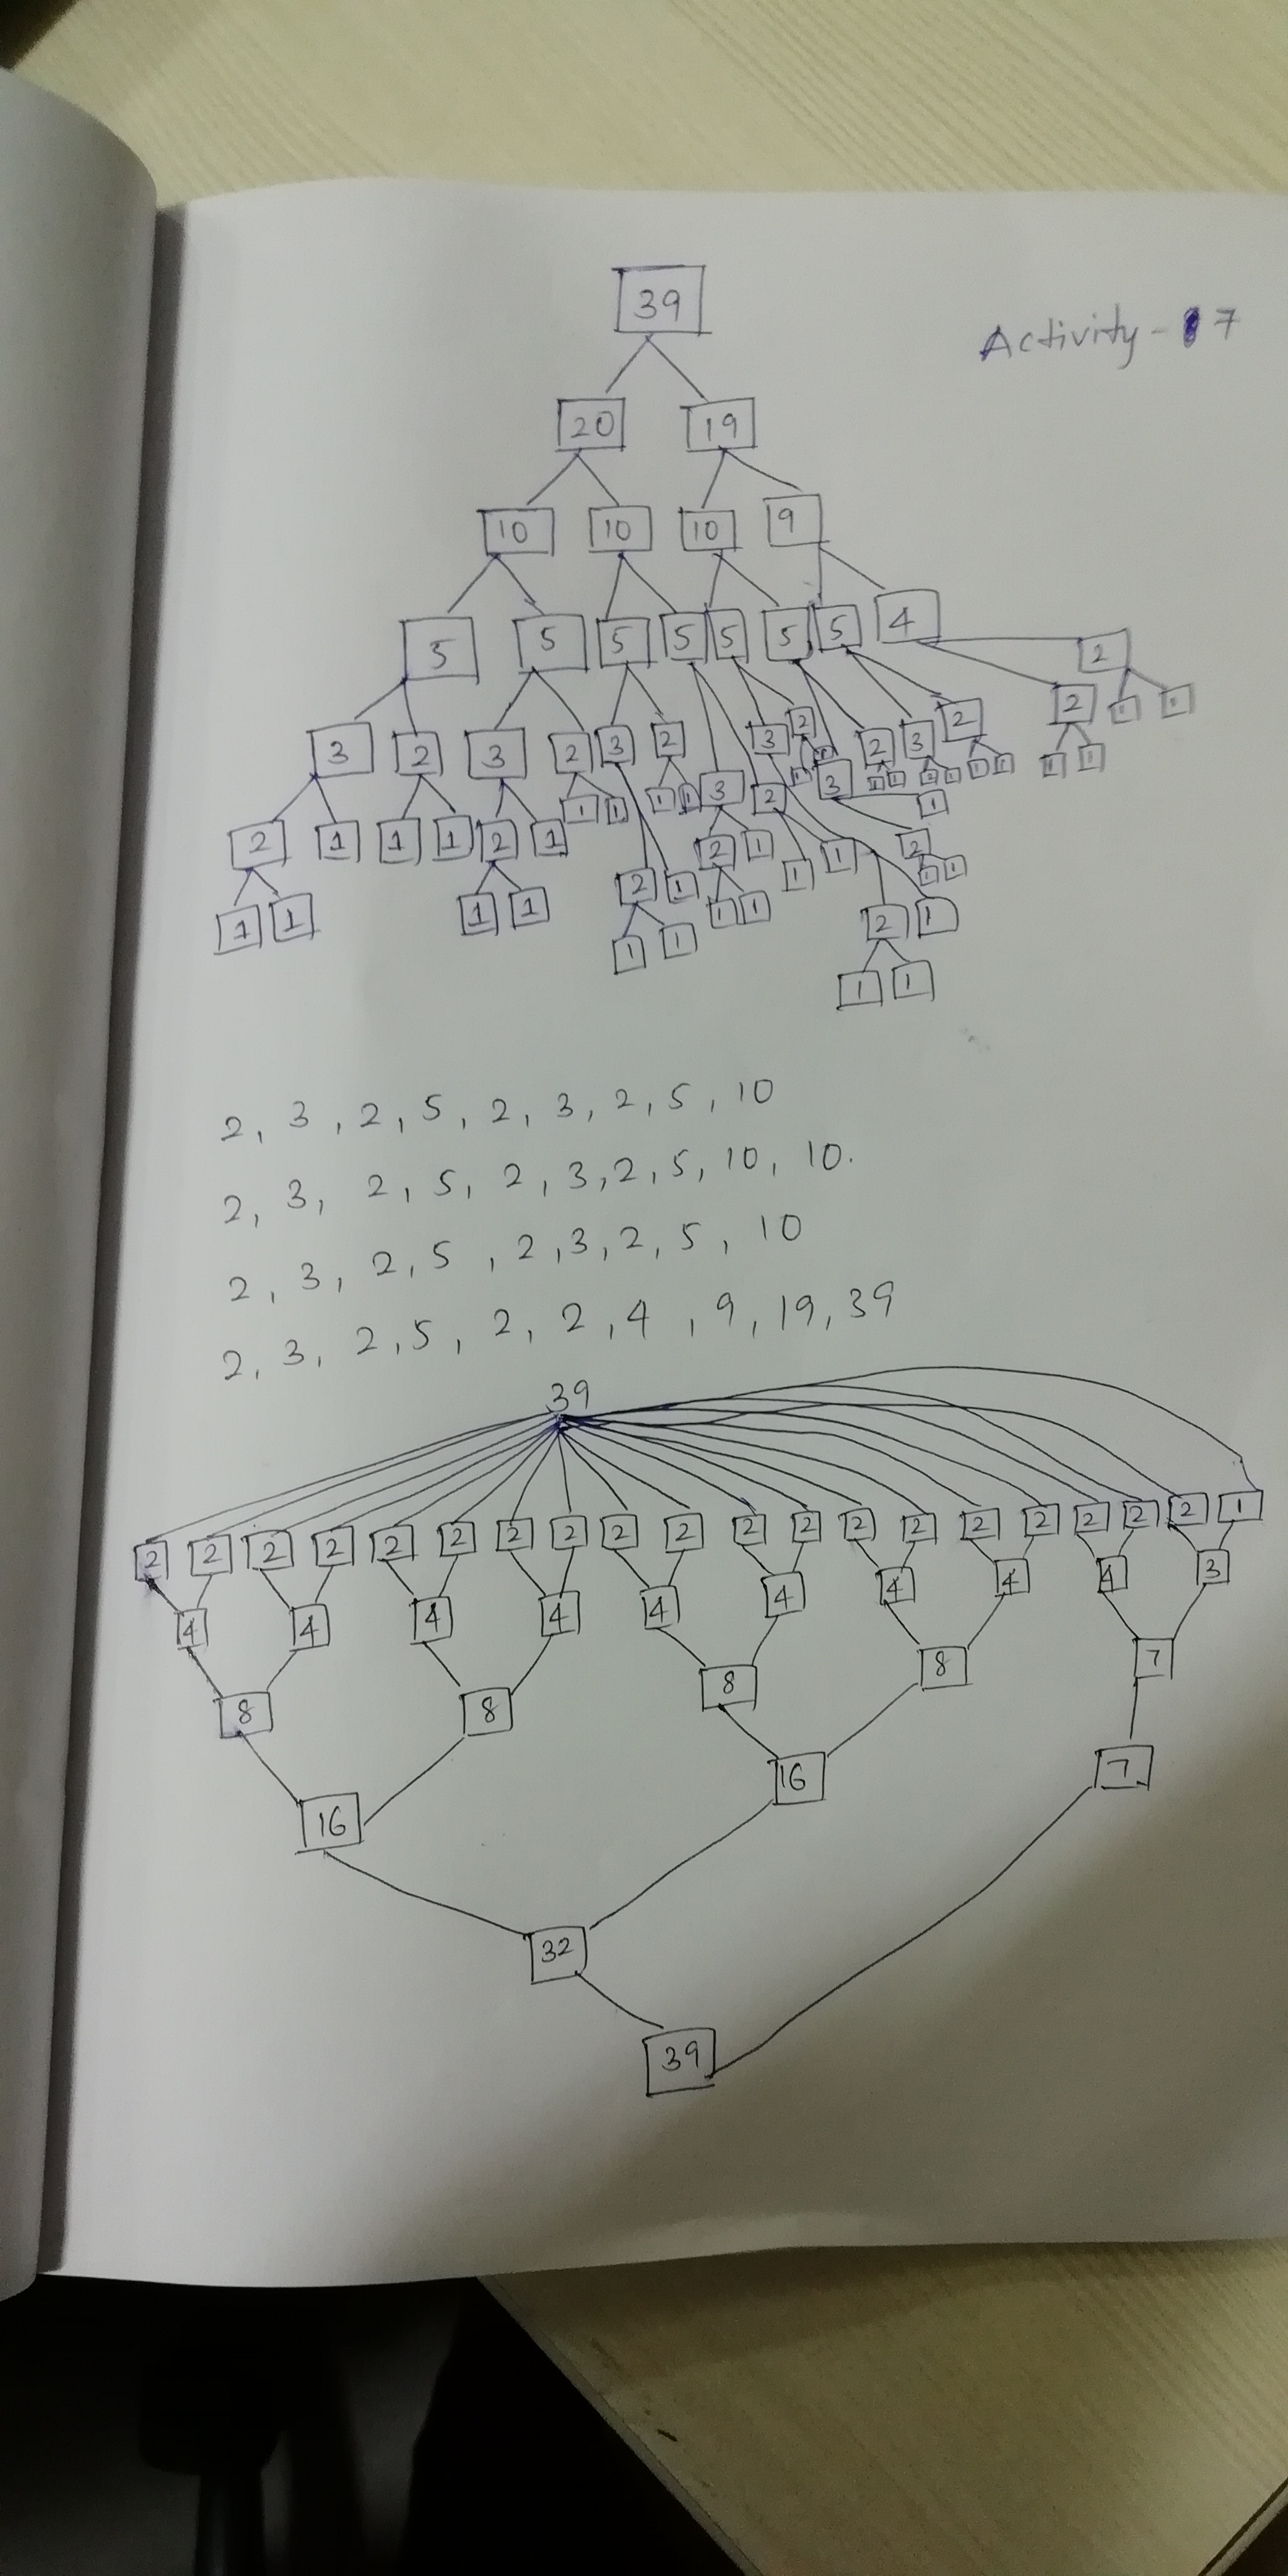 39
Activity - 7
20 19
10 10 10 9
5 5 5 5 5 5 5 4 2
3 2 3 2 3 2 3 2 2 3 2 2 1 1
3 2 3
2 1 1 1 2 1 1 1 1 1 2 1 1 1 2 1 1
1 1 1 1 2 1 1 1 2 1
1 1 1 1
2, 3, 2, 5, 2, 3, 2, 5, 10
2, 3, 2, 5, 2, 3, 2, 5, 10, 10.
2, 3, 2, 5, 2, 3, 2, 5, 10
2, 3, 2, 5, 2, 2, 4, 9, 19, 39
39
2 2 2 2 2 2 2 2 2 2 2 2 2 2 2 2 2 2 2 1
4 4 4 4 4 4 4 4 4 3
8 8 8 8 7
16 16 7
32
39